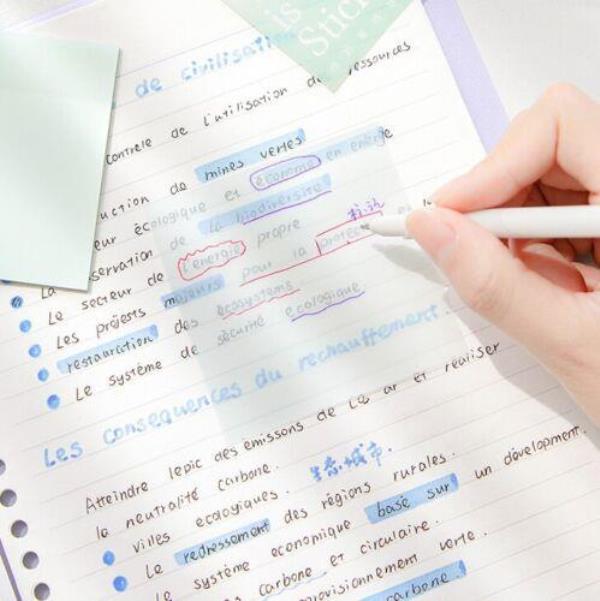 is
Stick
de civilisati
contrôle de l'utilisation de ressources
mines vertes
uction de
eur écologique et économe en energie
servation de la biodiversité
Le secteur de l'énergie propre
标记
Les projests majeurs pour la protec
restauration des ecosystems
Le système de sécurité ecologique
Les consequences du rechauffement.
Atteindre lepic des émissons de et réaliser
la neutralité carbone.
生态城市.
villes ecologiques.
Le redressement des régions rurales.
Le système economique basé sur un dévelopment.
carbone et circulaire.
provisionnement verte.
carbone.